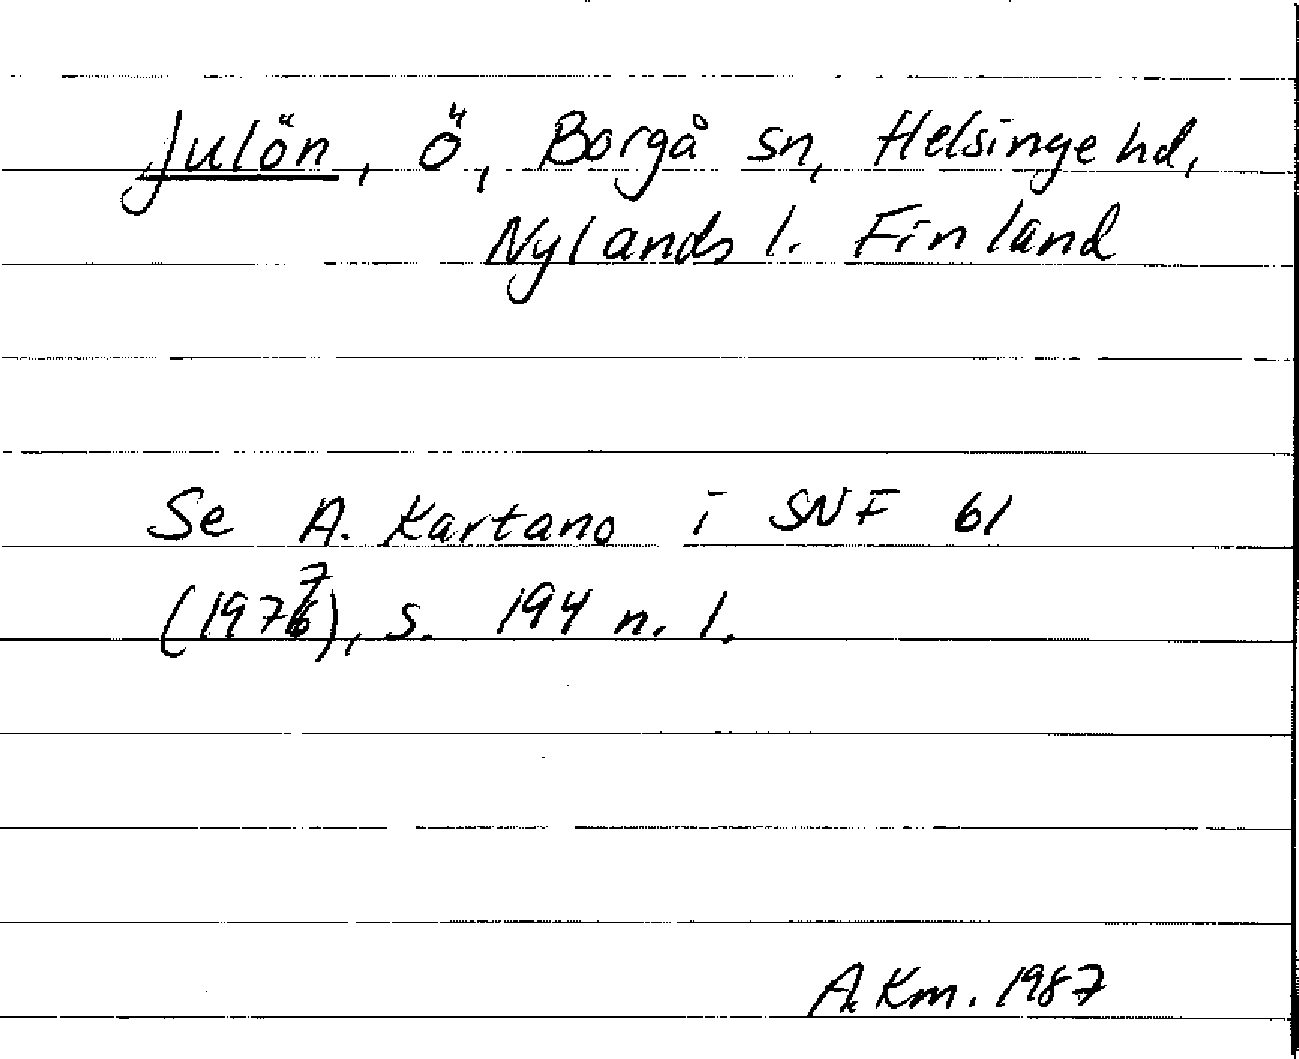 Julön, ö, Borgå sn, Helsinge hd,
Nylands l. Finland
Se A. Kartano i SNF 61
(1977), s. 194 n. 1.
A. Km. 1987